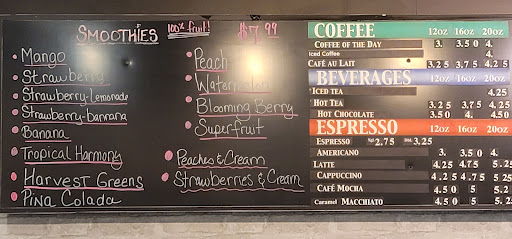 SMOOTHIES 100% fruit! $7.99
Mango
Strawberry
Strawberry-Lemonade
Strawberry-bannana
Banana
Tropical Harmony
Harvest Greens
Pina Colada
Peach
Watermelon
Blooming Berry
Superfruit
Peaches & Cream
Strawberries & Cream
COFFEE 12oz 16oz 20oz
COFFEE OF THE DAY 3. 3.50 4.
Iced Coffee 4.
CAFÉ AU LAIT 3.25 3.75 4.25
BEVERAGES 12oz 16oz 20oz
ICED TEA 4.25
HOT TEA 3.25 3.75 4.25
HOT CHOCOLATE 3.50 4. 4.50
ESPRESSO 12oz 16oz 20oz
ESPRESSO 2.75 3.25
AMERICANO 3. 3.50 4.
LATTE 4.25 4.75 5.25
CAPPUCCINO 4.25 4.75 5.25
CAFÉ MOCHA 4.50 5 5.
Caramel MACCHIATO 4.50 5 5.